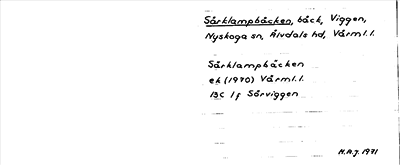 Sårklampbäcken, bäck, Viggen,
Nyskoga sn, Älvdals hd, Värml.l.
Sårklampbäcken
ek (1970) Värml.l.
13C 1f Sörviggen
H.A.J. 1971